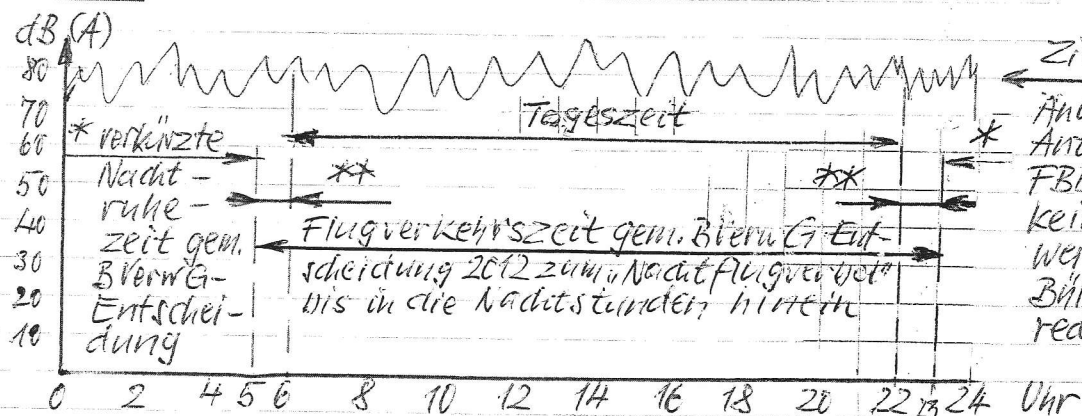 dB (A)
80
70
60
50
40
30
20
10
* verkürzte
Nacht-
ruhe-
zeit gem.
BVerwG-
Entschei-
dung
Tageszeit
**
**
*
Flugverkehrszeit gem. BVerwG Ent-
scheidung 2012 zum „Nachtflugverbot"
bis in die Nachtstunden hinein
0 2 4 5 6 8 10 12 14 16 18 20 22 23 24 Uhr